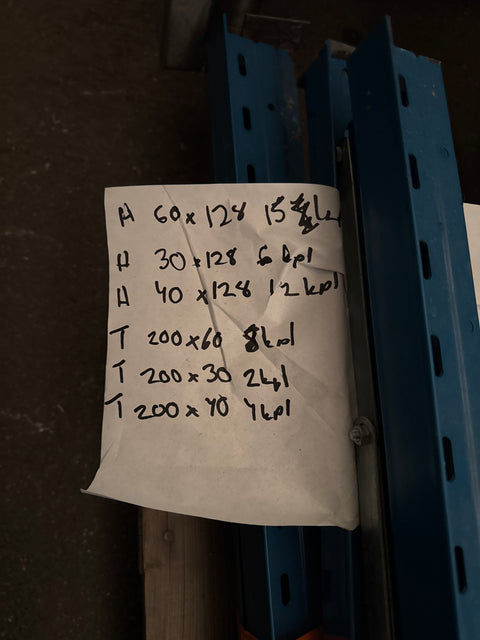 H 60x128 15 kpl
H 30x128 6 kpl
H 40x128 12 kpl
T 200x60 8kpl
T 200x30 2kpl
T 200x40 4kpl